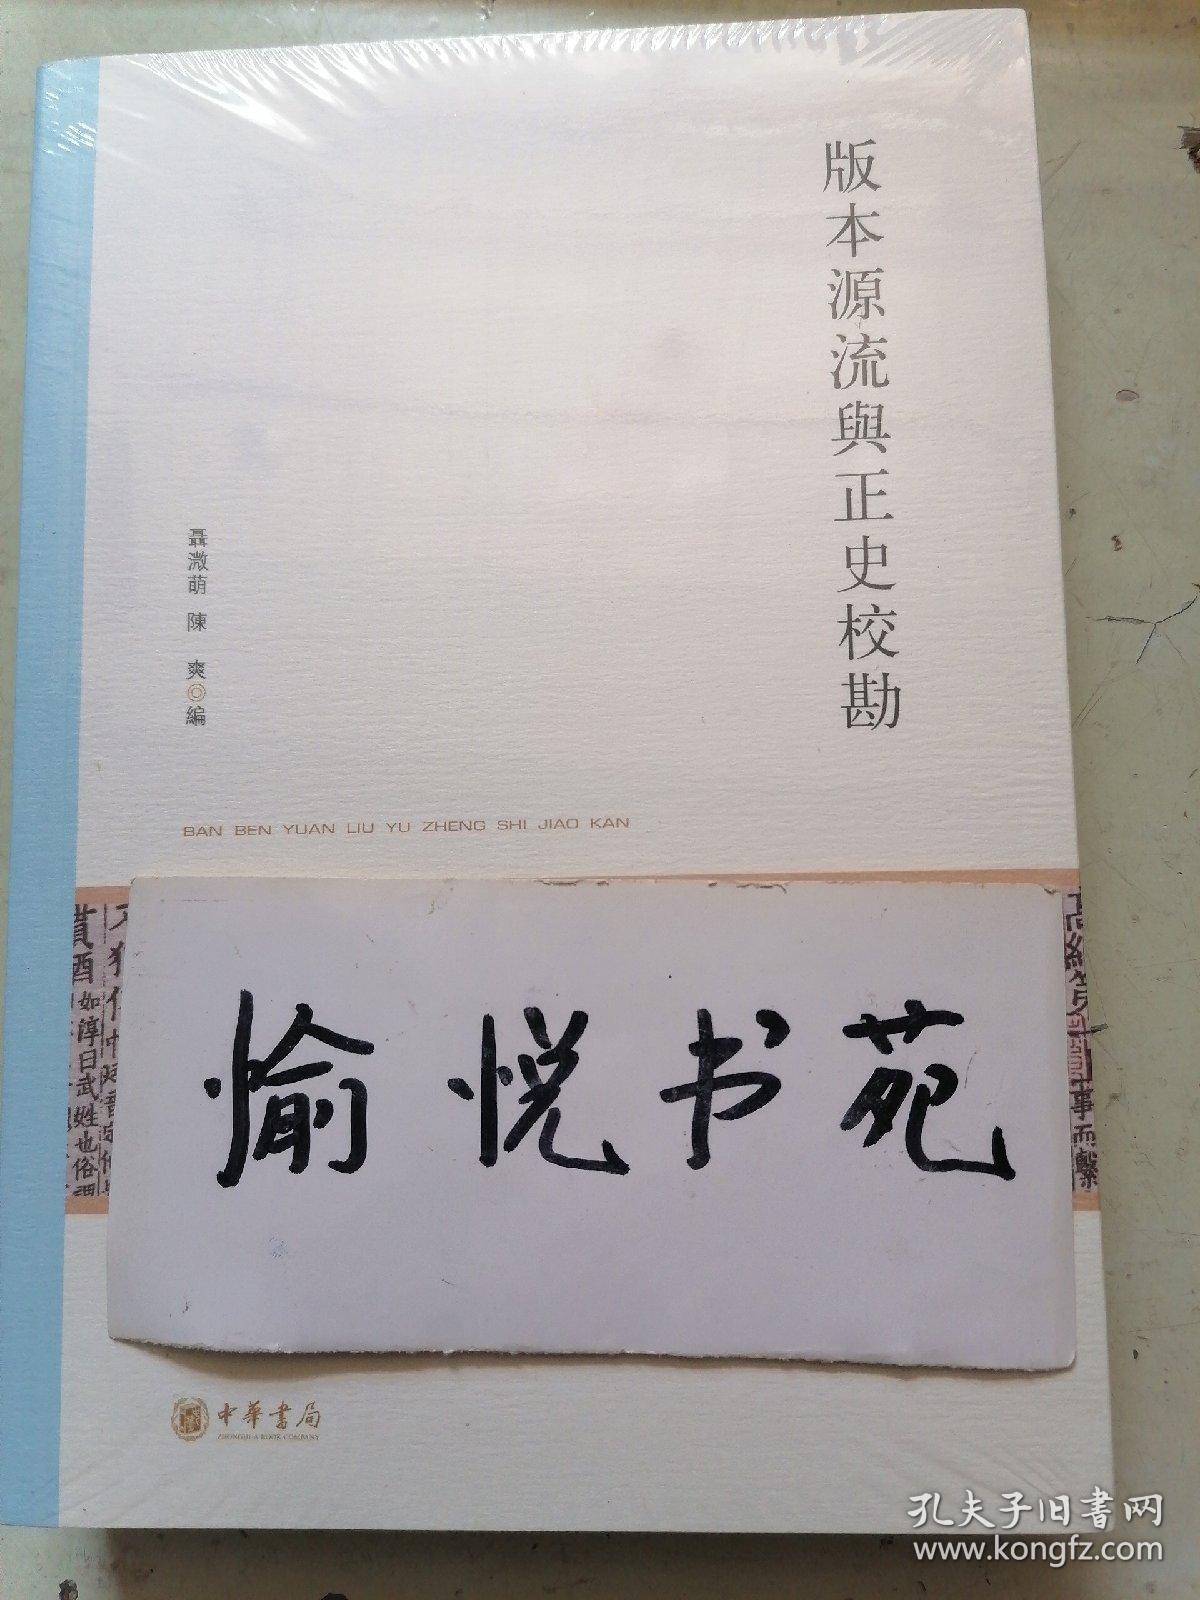 版本源流與正史校勘
聶溦萌 陳 爽◎編
BAN BEN YUAN LIU YU ZHENG SHI JIAO KAN
貰酒如淳曰武姓也俗謂
事而繫
愉悦书苑
中華書局
ZHONGHUA BOOK COMPANY
孔夫子旧書网
www.kongfz.com